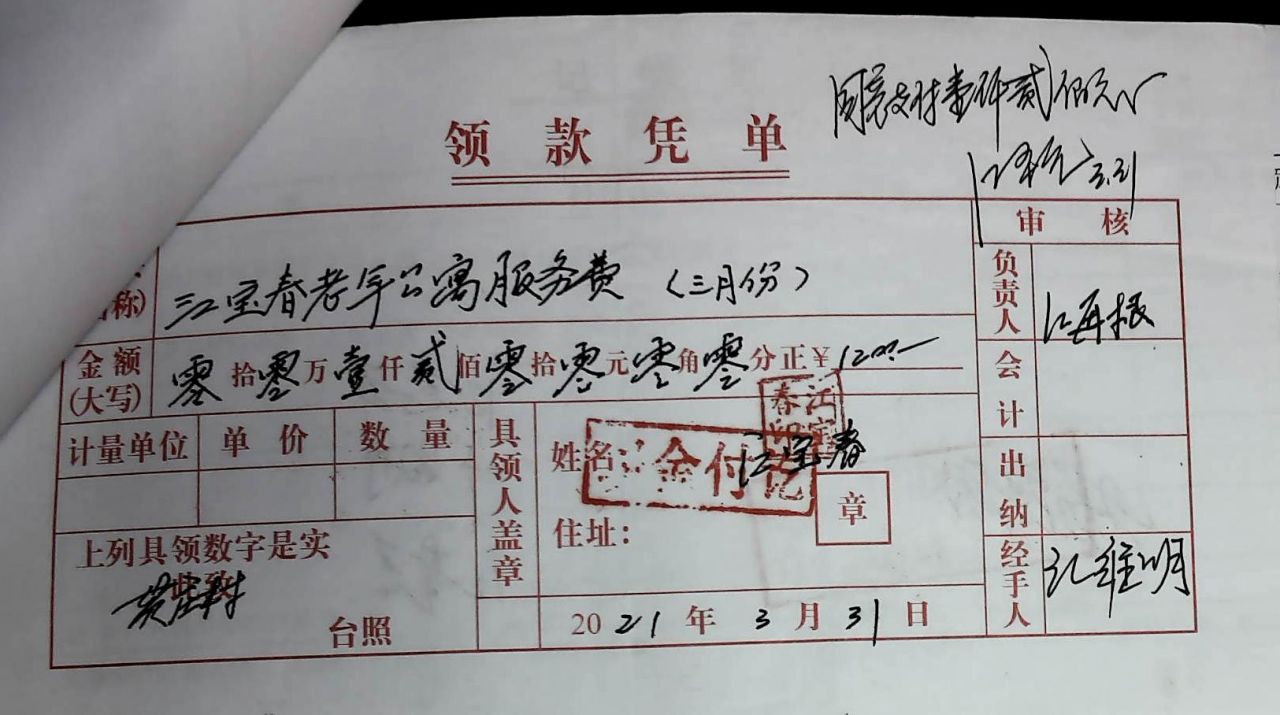 同意支付壹仟贰佰元
领款凭单
3.31
审核
称)
江宝春老年公寓服务费(三月份)
负责人
江海根
金额(大写)
零拾零万壹仟贰佰零拾零元零角零分正¥1200.—
会计
计量单位 单价 数量
具领人盖章
姓名 江宝春
金付讫
春江印宝
章
住址:
出纳
上列具领数字是实
台照
2021年3月31日
经手人
江维明